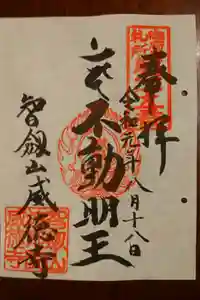 奉拝
令和元年八月十八日
不動明王
智釼山威徳寺